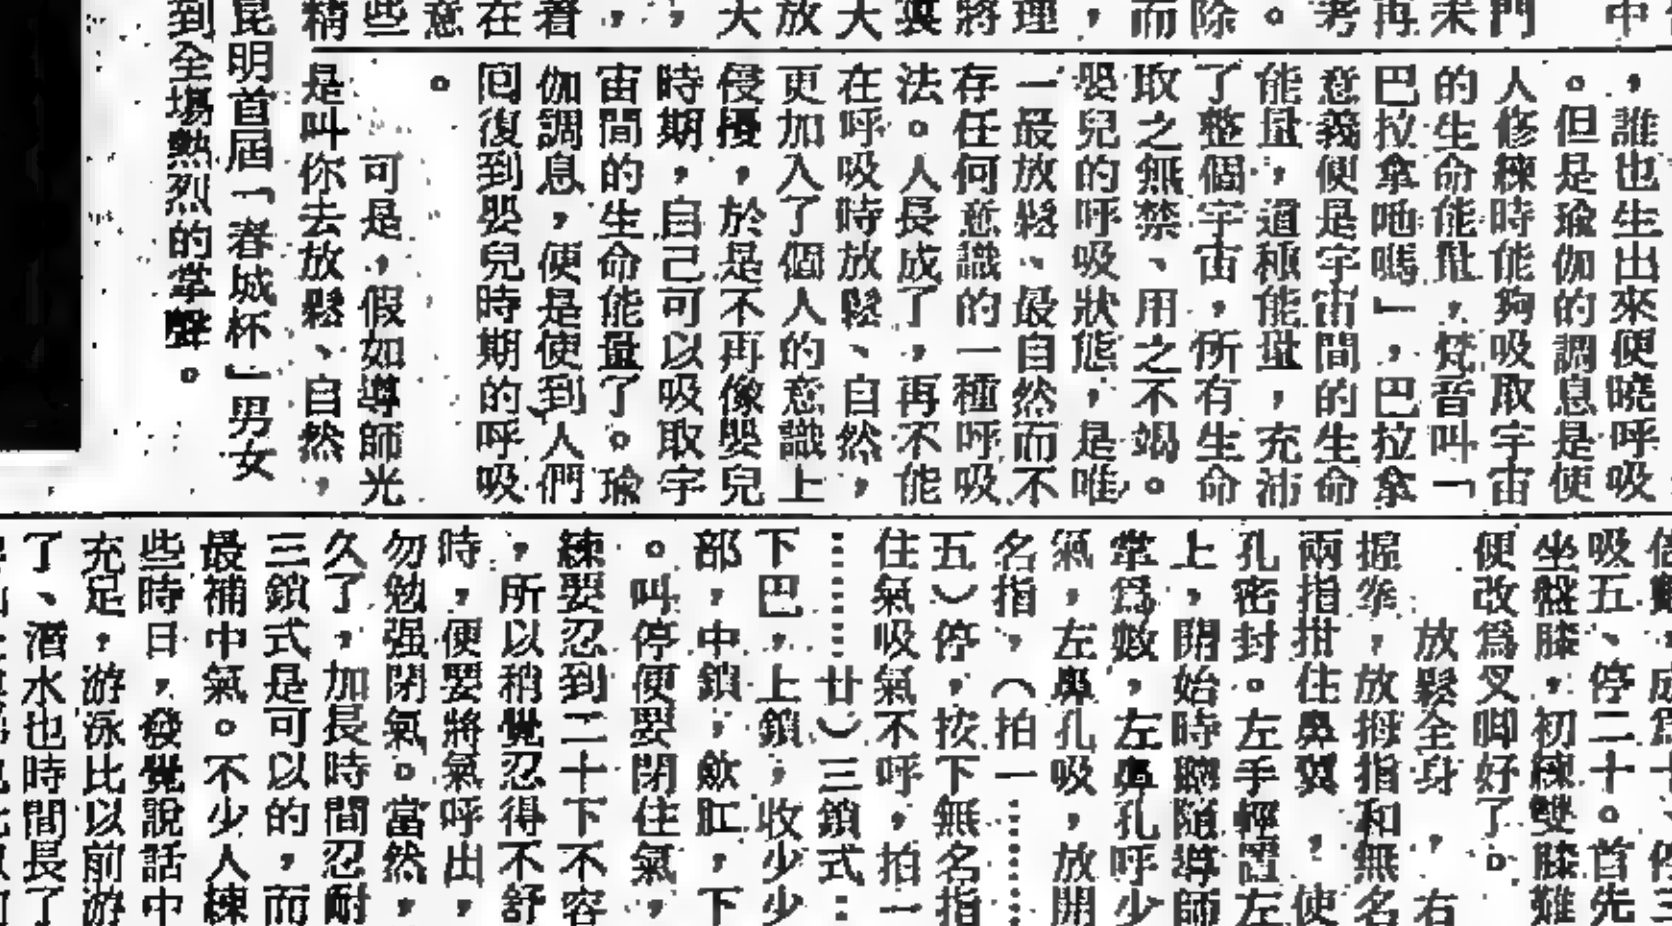 中
門
未
再
考
。
除
而
，
理
將
裏
大
放
大
，
，
着
在
意
些
精
，誰也生出來便曉呼吸
。但是瑜伽的調息是使
人修練時能夠吸取宇宙
的生命能量，梵音叫「
巴拉拿吔嗎」，巴拉拿
意義便是宇宙間的生命
能量，這種能量，充沛
了整個宇宙，所有生命
取之無禁、用之不竭。
嬰兒的呼吸狀態，是唯
一最放鬆、最自然而不
存任何意識的一種呼吸
法。人長成了，再不能
在呼吸時放鬆、自然，
更加入了個人的意識上
侵擾，於是不再像嬰兒
時期，自己可以吸取宇
宙間的生命能量了。瑜
伽調息，便是使到人們
囘復到嬰兒時期的呼吸
。
可是，假如導師光
是叫你去放鬆、自然，
昆明首屆「春城杯」男女
到全場熱烈的掌聲。
吸五、停二十。首先
坐盤膝，初練雙膝難
便改爲叉脚好了。
放鬆全身，右
握拳，放拇指和無名
兩指拑住鼻翼，使
孔密封。左手輕置左
上，開始時聽隨導師
掌爲數，左鼻孔呼少
氣，左鼻孔吸，放開
名指，（拍一……
五）停，按下無名指
住氣吸氣不呼，拍一
……廿）三鎖式：
下巴，上鎖，收少少
部，中鎖，歛肛，下
。叫停便要閉住氣，
練要忍到二十下不容
，所以稍覺忍得不舒
時，便要將氣呼出，
勿勉强閉氣。當然，
久了，加長時間忍耐
三鎖式是可以的，而
最補中氣。不少人練
些時日，發覺說話中
充足，游泳比以前游
了、潛水也時間長了